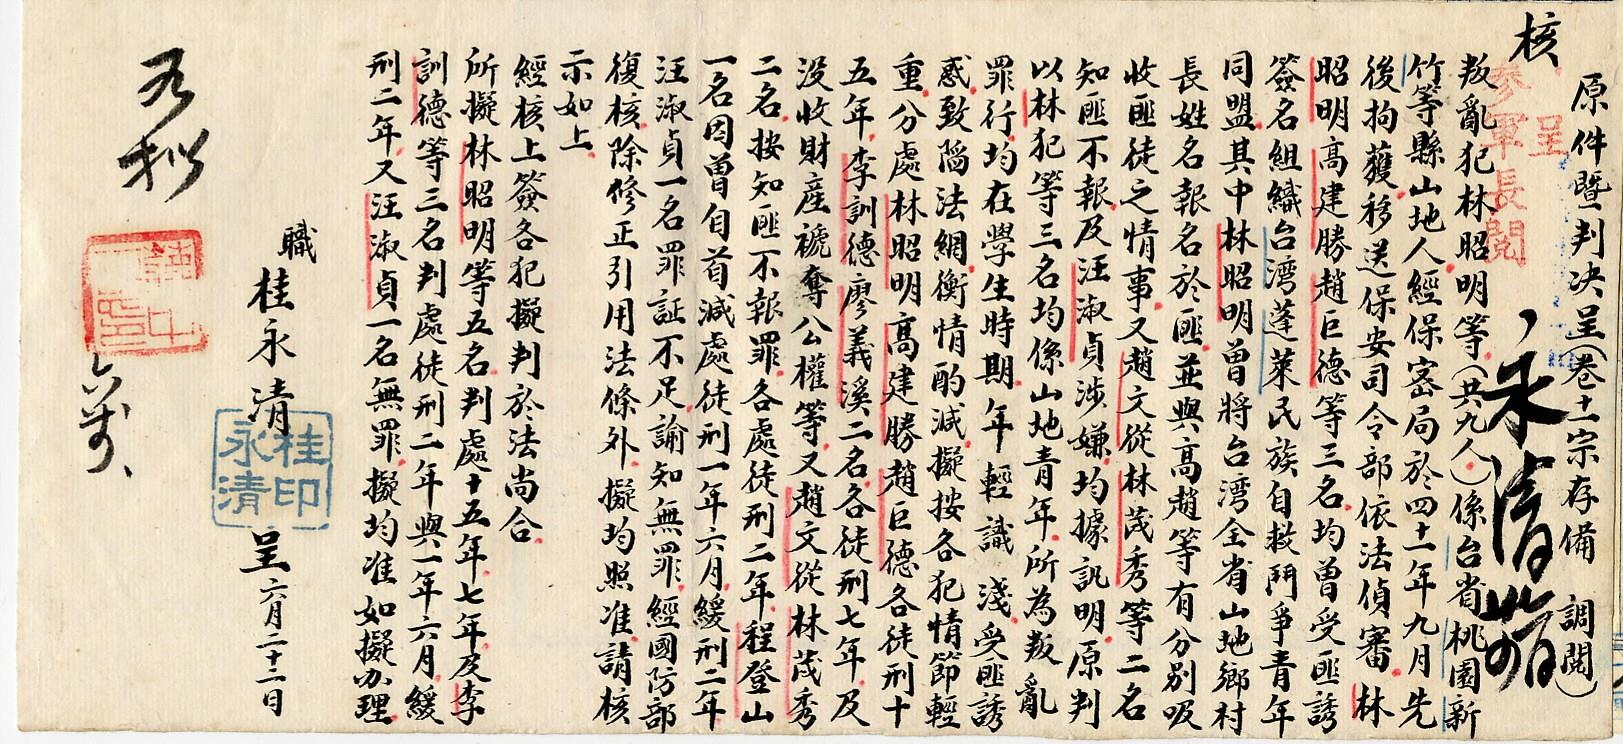 核
呈
參軍長閱
原件暨判決呈(卷十一宗存備 調閱)
叛亂犯林昭明等(共九人)係台省桃園新
竹等縣山地人經保密局於四十一年九月先
後拘獲移送保安司令部依法偵審林
昭明高建勝趙巨德等三名均曾受匪誘
簽名組織台湾蓬萊民族自救鬥爭青年
同盟其中林昭明曾將台湾全省山地鄉村
長姓名報名於匪並與高趙等有分別吸
收匪徒之情事又趙文從林茂秀等二名
知匪不報及汪淑貞涉嫌均據訊明原判
以林犯等三名均係山地青年所為叛亂
罪行均在學生時期年輕識淺受匪誘
惑致陷法網衡情酌減擬按各犯情節輕
重分處林昭明高建勝趙巨德各徒刑十
五年李訓德廖義溪二名各徒刑七年及
没收財産褫奪公權等又趙文從林茂秀
二名按知匪不報罪各處徒刑二年程登山
一名因曾自首減處徒刑一年六月緩刑二年
汪淑貞一名罪証不足諭知無罪經國防部
復核除修正引用法條外擬均照准請核
示如上
經核上簽各犯擬判於法尚合
所擬林昭明等五名判處十五年七年及李
訓德等三名判處徒刑二年與一年六月緩
刑二年又汪淑貞一名無罪擬均准如擬办理
職
桂永清
桂永清印
呈 六月二十二日
如擬